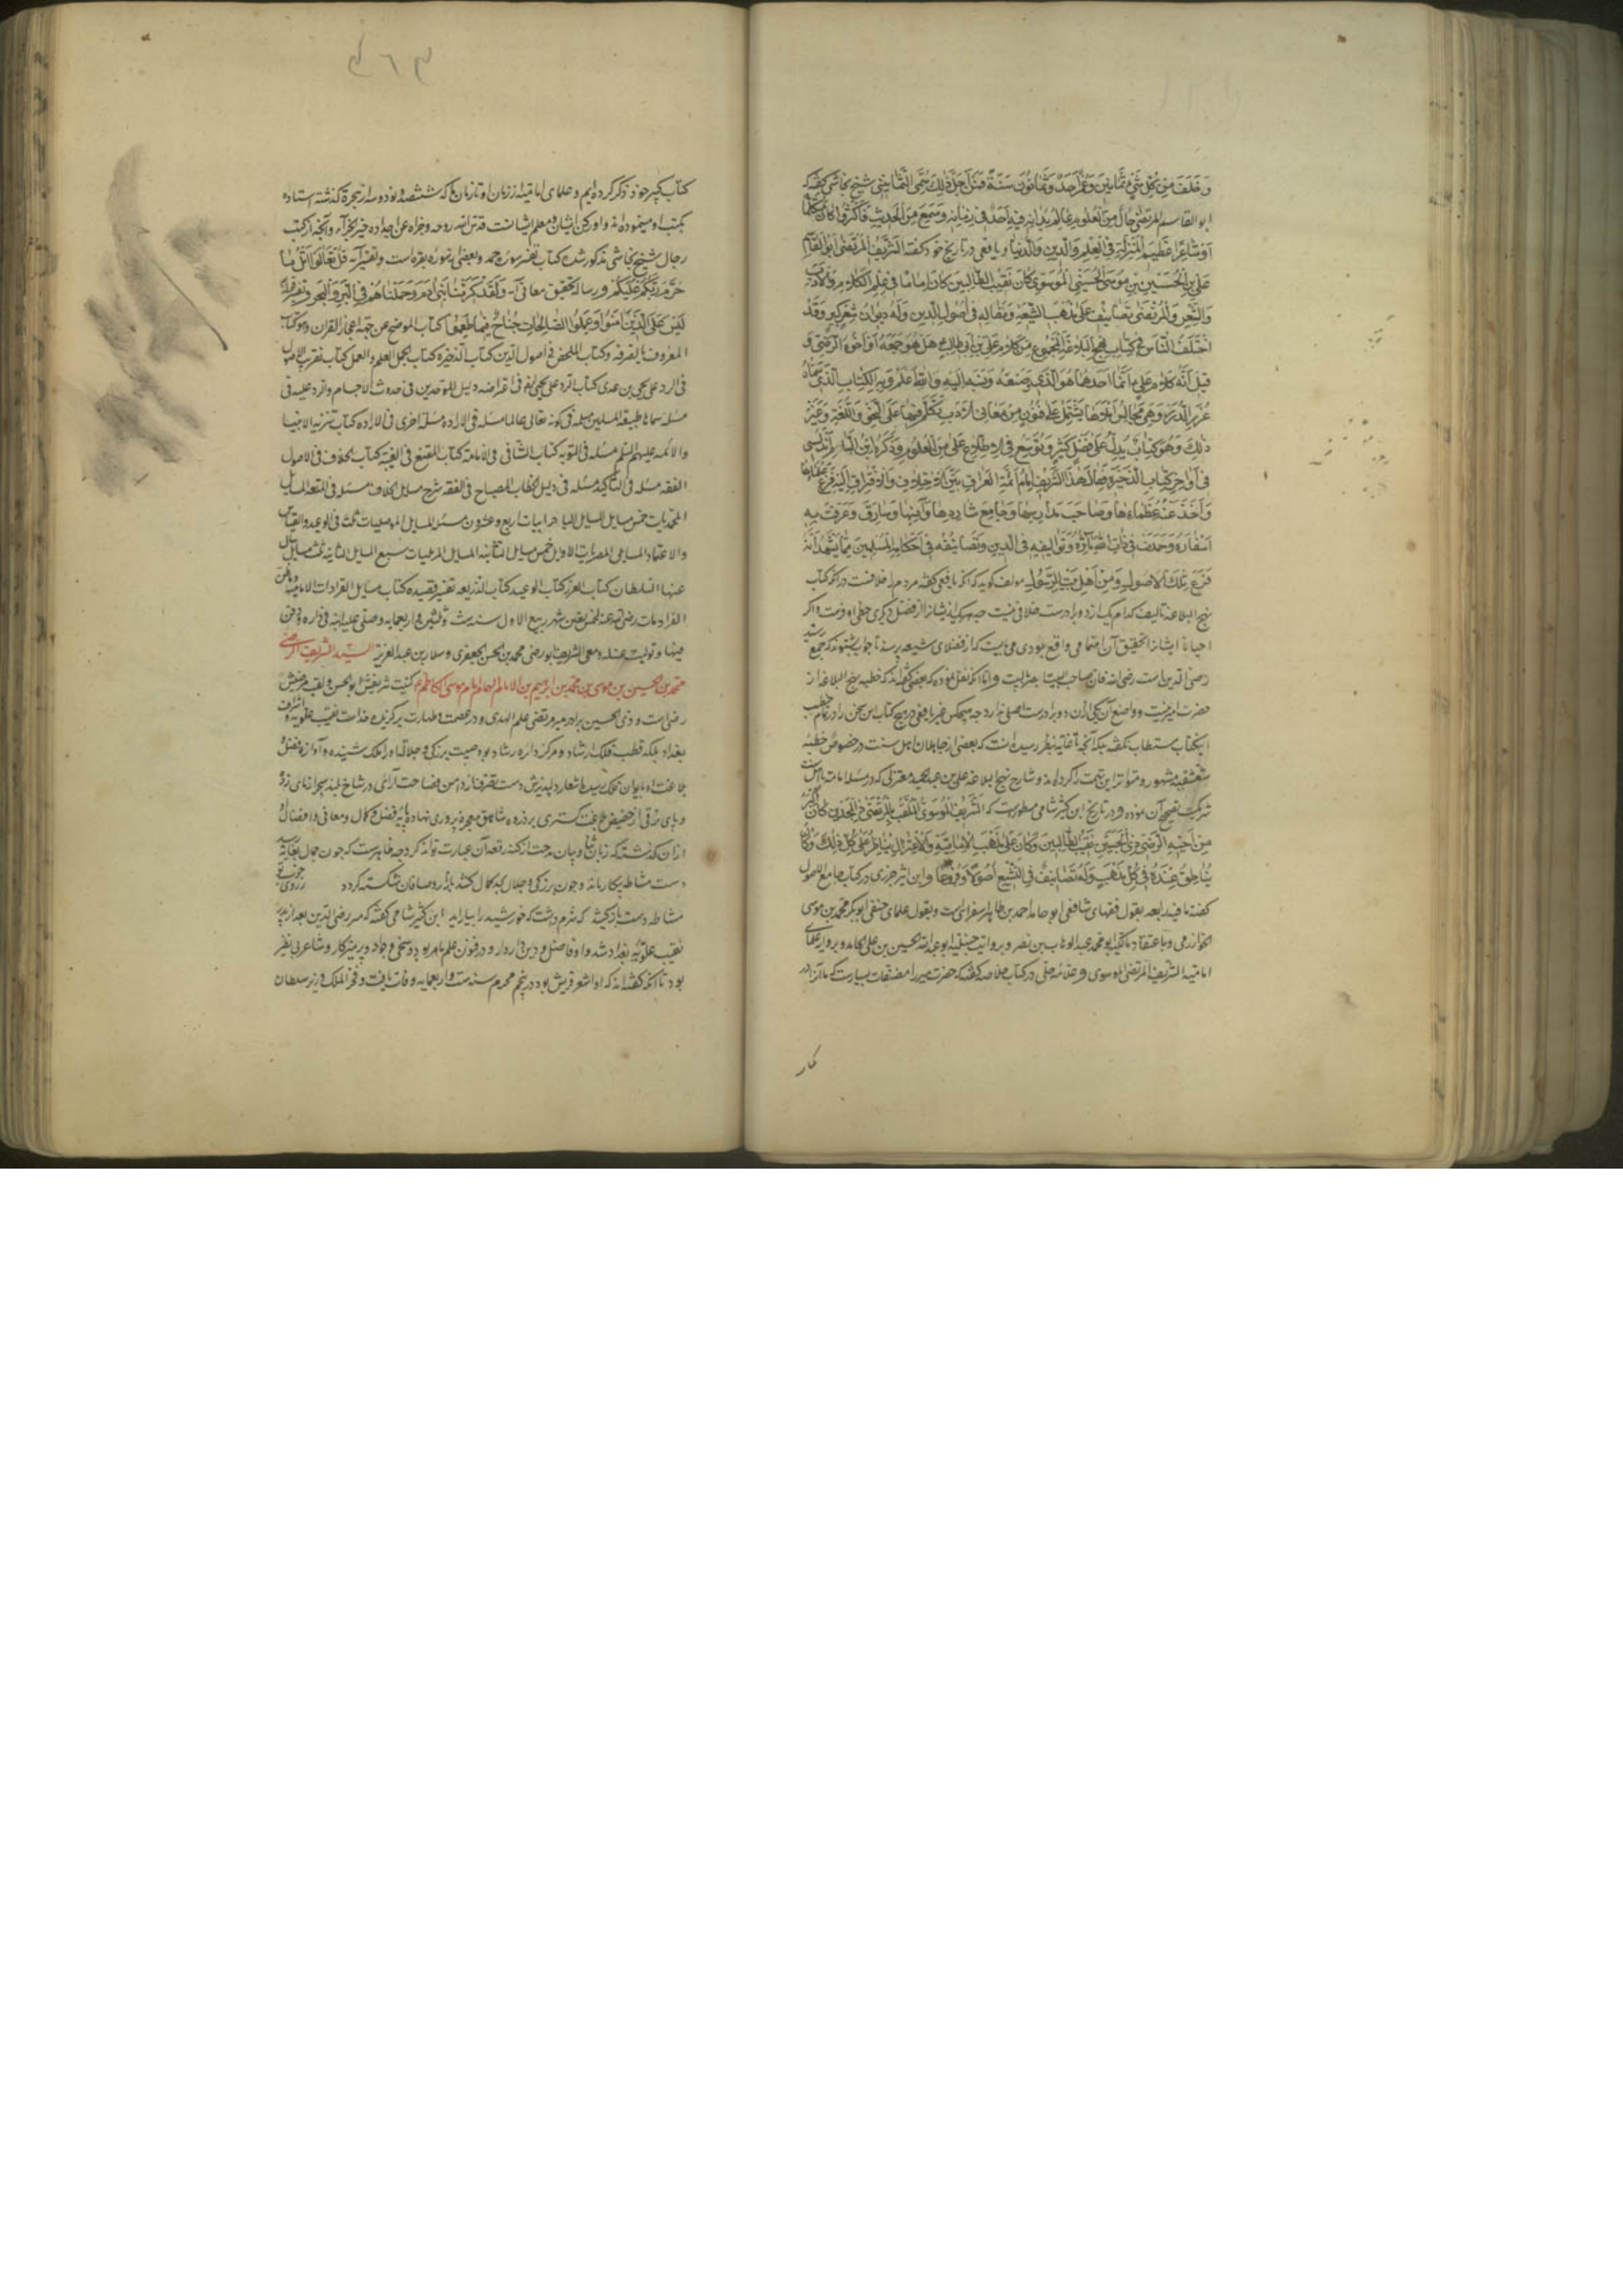 و خلف من كل شيء ثمانين و عمر احدی و ثمانون سنة فمن اجل ذلك سمی الثمانینی شیخ نجاشی گفته که
ابو القاسم المرتضی حاز من العلوم مالم یدانه فیه احد فی زمانه و سمع من الحدیث فاکثر و کان متکلما
شاعرا عظیم المنزلة فی العلم والدین والدنیا و یافعی در تاریخ خود گفته الشریف المرتضی ابو القاسم
علی بن الحسین بن موسی الحسینی الموسوی کان نقیب الطالبین کان اماما فی علم الکلام والادب
والشعر والمرتضی تصانیف علی مذهب الشیعة و مقالة فی اصول الدین وله دیوان شعر کبیر وقد
اختلف الناس فی کتاب نهج البلاغة المجموع من کلام علی بن ابی طالب هل هو جمعه او اخوه الرضی و
قیل انه لیس کلام علی انما احدهما هو الذی وضعه ونسبه الیه والله اعلم وله الکتاب الذی سماه
غرر الدرر وهی مجالس املاها یشتمل علی فنون من معانی الادب تکلم فیها علی النحو واللغة وغیر
ذلك وهو کتاب یدل علی فضل کثیر و توسع فی الاطلاع علی من العلوم وذکره ابن البسام الاندلسی
فی اواخر کتاب الذخیرة فقال هذا الشریف امام ائمة العراق بین الاختلاف والافتراق الیه فزع علماءها
واخذ عنه عظماءها وصاحب مدارسها وجامع شاردها وآنسها وسارق وعرفت به
اشعاره وحمدت فی ذات الله مآثره وتوالیفه فی الدین وتصانیفه فی احکام المسلمین مما یشهد انه
فرع تلك الاصول ومن اهل بیت الرسول مولف گوید که آنکه یافعی گفته مردم را خلافست در آنکه کتاب
نهج البلاغه تالیف کدام یک از دو برادرست خلافی نیست چه هر یک ایشانرا از فضل دیگری حظ اوفرست و اگر
احیانا ایشانرا تحقیق آن اهتمامی واقع بودی می‌بایست که از فضلای شیعه پرسند تا جواب بشنوند که جمع سید
رضی الدین است رضی الله عنه فان صاحب البیت ابصر بما فی البیت و اما آنکه نقل نموده که بعضی گفته‌اند که خطبه نهج البلاغه از
حضرت امیر نیست و واضع آن یکی ازان دو برادرست اصلی ندارد چه هیچکس غیر یافعی در هیچ کتاب این سخن را در تمام خطب
این کتاب مستطاب نگفته بلکه آنچه تا غایت بنظر رسیده آنست که بعضی از جاهلان اهل سنت در خصوص خطبه
شقشقیه مشهور و متواتر این تهمت را کرده‌اند و شارح نهج البلاغه علی بن عبدالحمید معتزلی که در مسئله امامت با اهل سنت
شریکست تصحیح آن نموده و در تاریخ ابن کثیر شامی مسطورست که الشریف الموسوی الملقب بالمرتضی ذی المجدین کان اکبر
من اخیه الرضی ذی الحسبین نقیب الطالبین وکان علی مذهب الامامیة والاعتزال یناظر علی کل ذلك وکان
یناطق عنده فی کل مذهب وله تصانیف فی التشیع اصولا وفروعا و ابن اثیر جزری در کتاب جامع الاصول
گفته مائة رابعه بقول فقهای شافعی ابو حامد احمد بن طاهر اسفراینی است و بقول علمای حنفی ابوبکر محمد بن موسی
الخوارزمی و باعتقاد مالکیه ابو محمد عبد الوهاب بن نصر و بروایت حنبلیه ابو عبد الله الحسین بن علی الحامد و بروایت علمای
امامیه الشریف المرتضی الموسوی و علامه حلی در کتاب خلاصه گفته که حضرت میر را مصنفات بسیارست که ما آنرا در
کتاب کبیر خود ذکر کرده‌ایم و علمای امامیه از زمان او تا زمان ما که ششصد و نود و سه از هجرة گذشته استفاده
بکتب او مینموده‌اند و او رکن ایشان و معلم ایشانست قدس الله روحه وجزاه عن اجداده خیر الجزاء و آنچه از کتب
رجال شیخ نجاشی مذکور شده کتاب تفسیر سوره حمد و بعضی از سوره بقره است و تفسیر آیه قل تعالوا اتل ما
حرم ربکم علیکم و رساله تحقیق معانی آیه ولقد کرمنا بنی آدم وحملناهم فی البر والبحر وتفسیر آیه
لیس علی الذین آمنوا وعملوا الصالحات جناح فیما طعموا کتاب الموضح عن جهة اعجاز القران وهو کتاب
المعروف بالصرفه وکتاب الملخص فی اصول الدین کتاب الذخیره کتاب الجمل العلم والعمل کتاب تقریب الاصول
فی الرد علی یحیی بن عدی کتاب الرد علی یحیی ایضا فی اعتراضه دلیل الموحدین فی حدوث الاجسام والرد علیه فی
مسئله سماها طبیعة المسلمین مسئله فی کونه تعالی عالما مسئله فی الاراده مسئلة اخری فی الاراده کتاب تنزیه الانبیا
والائمه علیهم السلم مسئله فی التوبه کتاب الشافی فی الامامه کتاب المقنع فی الغیبة کتاب الخلاف فی الاصول
الفقه مسئله فی التاکید مسئله فی دلیل الخطاب المصباح فی الفقه شرح مسایل الخلاف مسئله فی المتعه المسایل
المحمدیات خمس مسایل المسایل البادرابیات اربع وعشرون مسئله المسایل الموصلیات ثلث فی الوعید والقیاس
والاعتماد المسایل المصریات الاولی خمس مسایل الثانیه المسایل الرملیات سبع المسایل الثانیه ثلث مسایل سال
عنها السلطان کتاب الغرر کتاب الوعید کتاب الذریعه تفسیر قصیده کتاب مسایل انفرادات الامامیه
انفرادات رضی الله عنه لخمس بقین شهر ربیع الاول سنه ست وثلثین و اربعمایه وصلی علیه ابنه فی داره ودفن
فیها و تولیت غسله ومعی الشریف ابو یعلی محمد بن الحسن الجعفری وسلار بن عبدالعزیز السید الشریف الرضی
محمد بن الحسین بن موسی بن محمد بن ابراهیم بن الامام الهمام موسی الکاظم م کنیت شریفش ابو الحسن و لقب مرضیش
رضی است و ذی الحسبین برادر میر مرتضی علم الهدی و در عصمت و طهارت برگزیده خداست نقیب علویه و اشراف
بغداد بلکه قطب فلک ارشاد و مرکز دایره رشاد بود صیت بزرگی و جلالت او را ملک شنیده و آوازه فضل و
بلاغت او بایوان فلک رسیده اشعار دلپذیرش دست تصرف از دامن فصاحت آرائی در شاخ بلند سحر آزمای زده
و پای ترقی از حضیض بلاغت گستری بر ذروه شاهق معجزه پروری نهاده پایه فضل و کمال و معانی و افضال او
ازان گذشته که زبان ثنا و بیان مدحت از کنه رفعت آن عبارت تواند کرد چه ظاهرست که چون جمال بغایت رسید
دست مشاطه بیکار ماند و چون بزرگی و جلال بکمال کشد بازار وصافان شکسته گردد
مشاطه دست باز کشد که شرم داشت که خورشید را بیاراید ابن کثیر شامی گفته که میر رضی الدین بعد از پدر
نقیب علویه بغداد شد و او فاضل و دین‌دار بود و در فنون علم ماهر بود و سخی و جواد و پرهیزکار و شاعر بی نظیر
بود تا آنکه گفته‌اند که او اشعر قریش بود در پنجم محرم سنه ست و اربعمایه وفات یافت و فخر الملک وزیر سلطان